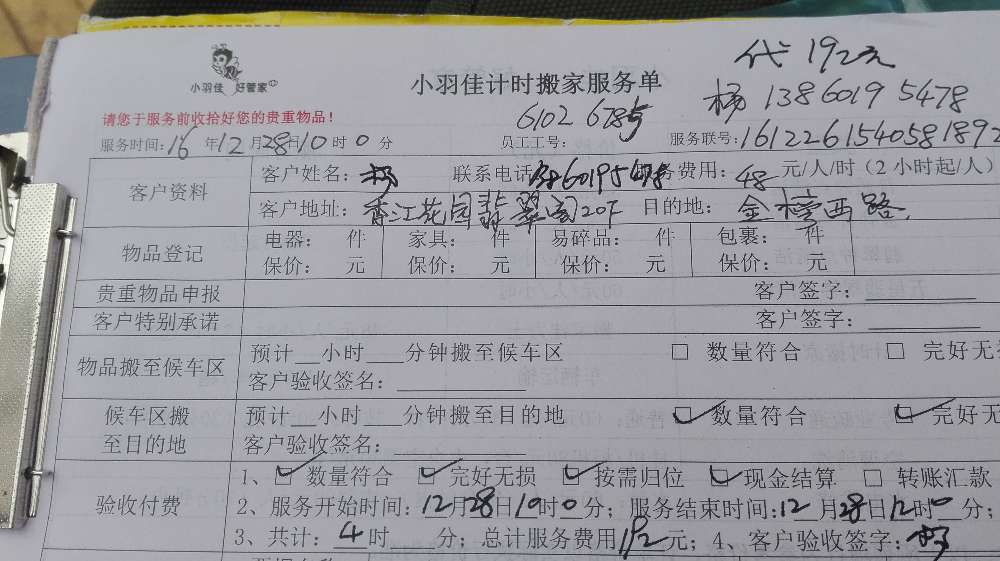 代 192元
小羽佳 好管家
小羽佳计时搬家服务单
杨 13860195478
请您于服务前收拾好您的贵重物品！
6102 678号
服务时间：16 年 12 月 28 日 10 时 0 分
员工工号：
服务联号：1612261540581892
客户资料
客户姓名：杨 联系电话 务费用：48 元/人/时（2 小时起/人）
客户地址：香江花园翡翠阁20F 目的地：金 西路
物品登记
电器： 件 家具： 件 易碎品： 件 包裹： 件
保价： 元 保价： 元 保价： 元 保价： 元
贵重物品申报 客户签字：
客户特别承诺 客户签字：
物品搬至候车区
预计 小时 分钟搬至候车区 □ 数量符合 □ 完好无
客户验收签名：
候车区搬
至目的地
预计 小时 分钟搬至目的地 ☑ 数量符合 ☑ 完好无
客户验收签名：
验收付费
1、☑ 数量符合 ☑ 完好无损 ☑ 按需归位 ☑ 现金结算 □ 转账汇款
2、服务开始时间：12月28日10时0分；服务结束时间：12月28日12时0分；
3、共计：4时 分；总计服务费用192元；4、客户验收签字：杨